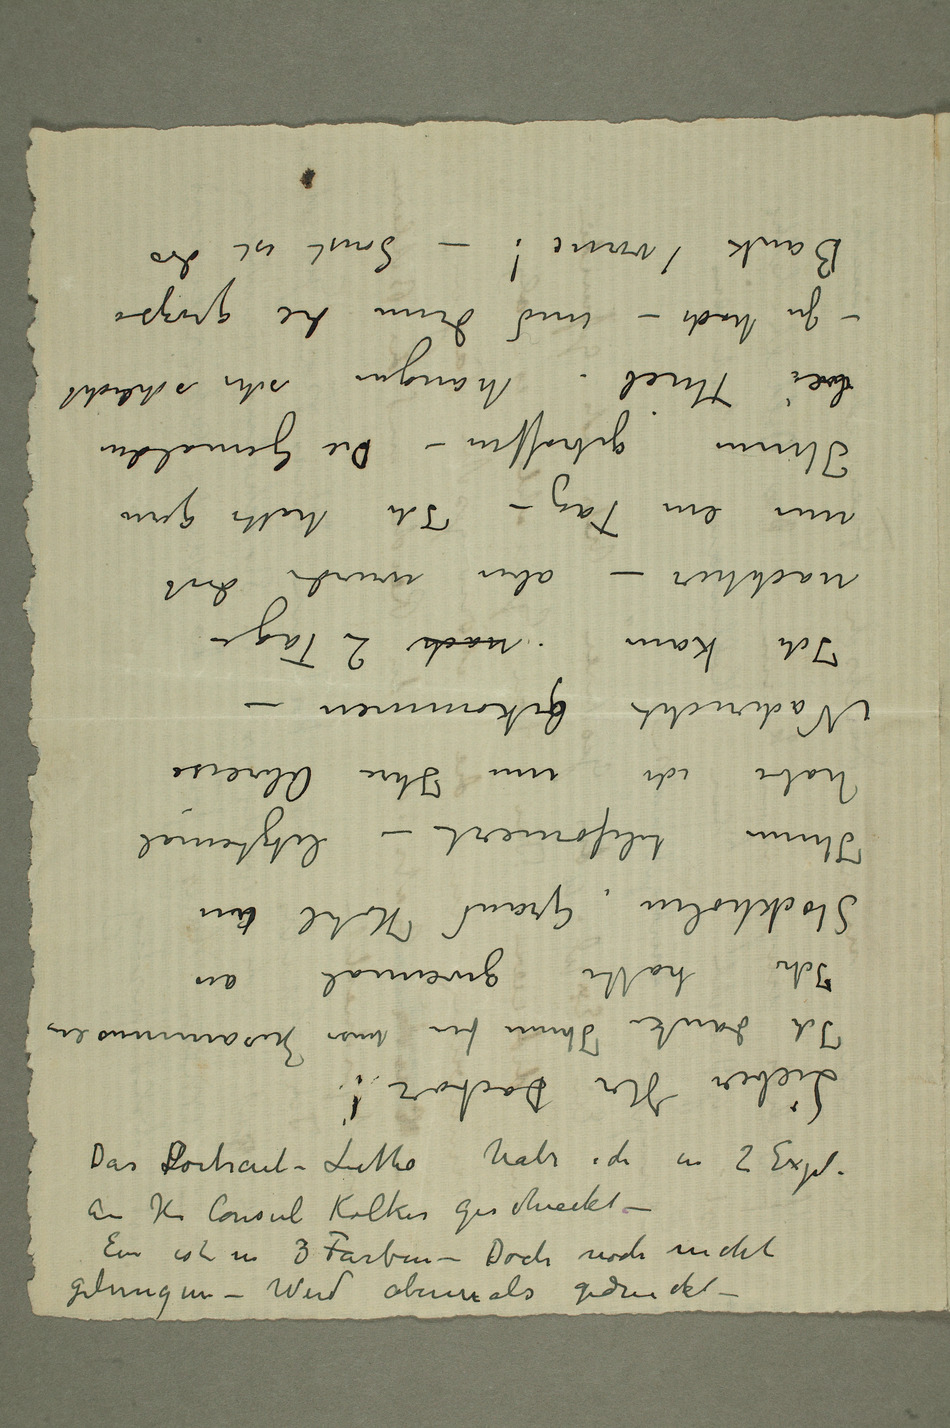 Lieber Her Doctor!
Ich danke Ihnen für Zusammensein
Ich hatte zweimal an
Stockholm, Grand Hotel an
Ihnen telefoniert – letztemal
habe ich nur Ihre Abreise
Nachricht bekommen –
Ich kam nach 2 Tage
nachher – aber wurde dort
nur ein Tag – Ich hatte gern
Ihnen getroffen – Die Gemälden
bei Thiel hangen sehr schlecht
– zu hoch – und denn die grosse
Bank vorne! – Sonst ist das
Das Portrait-Litho habe ich in 2 Expl.
an Hr Consul Kolker geschickt –
Ein ist in 3 Farben – Doch noch nicht
gelungen – Wird abermals gedruckt –